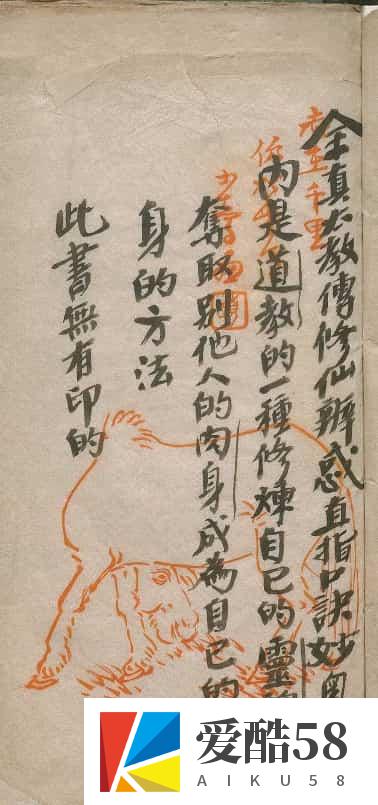 全真大教傳修仙辨惑直指口訣妙
內是道教的一種修煉自己的靈
奪取別他人的肉身成為自己的
身的方法
此書無有印的
赤至千里
爱酷58
AIKU58